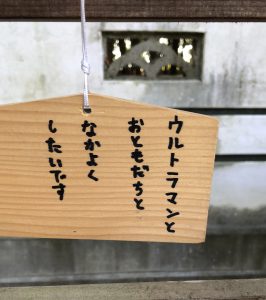 ウルトラマンと
おともだちと
なかよく
したいです